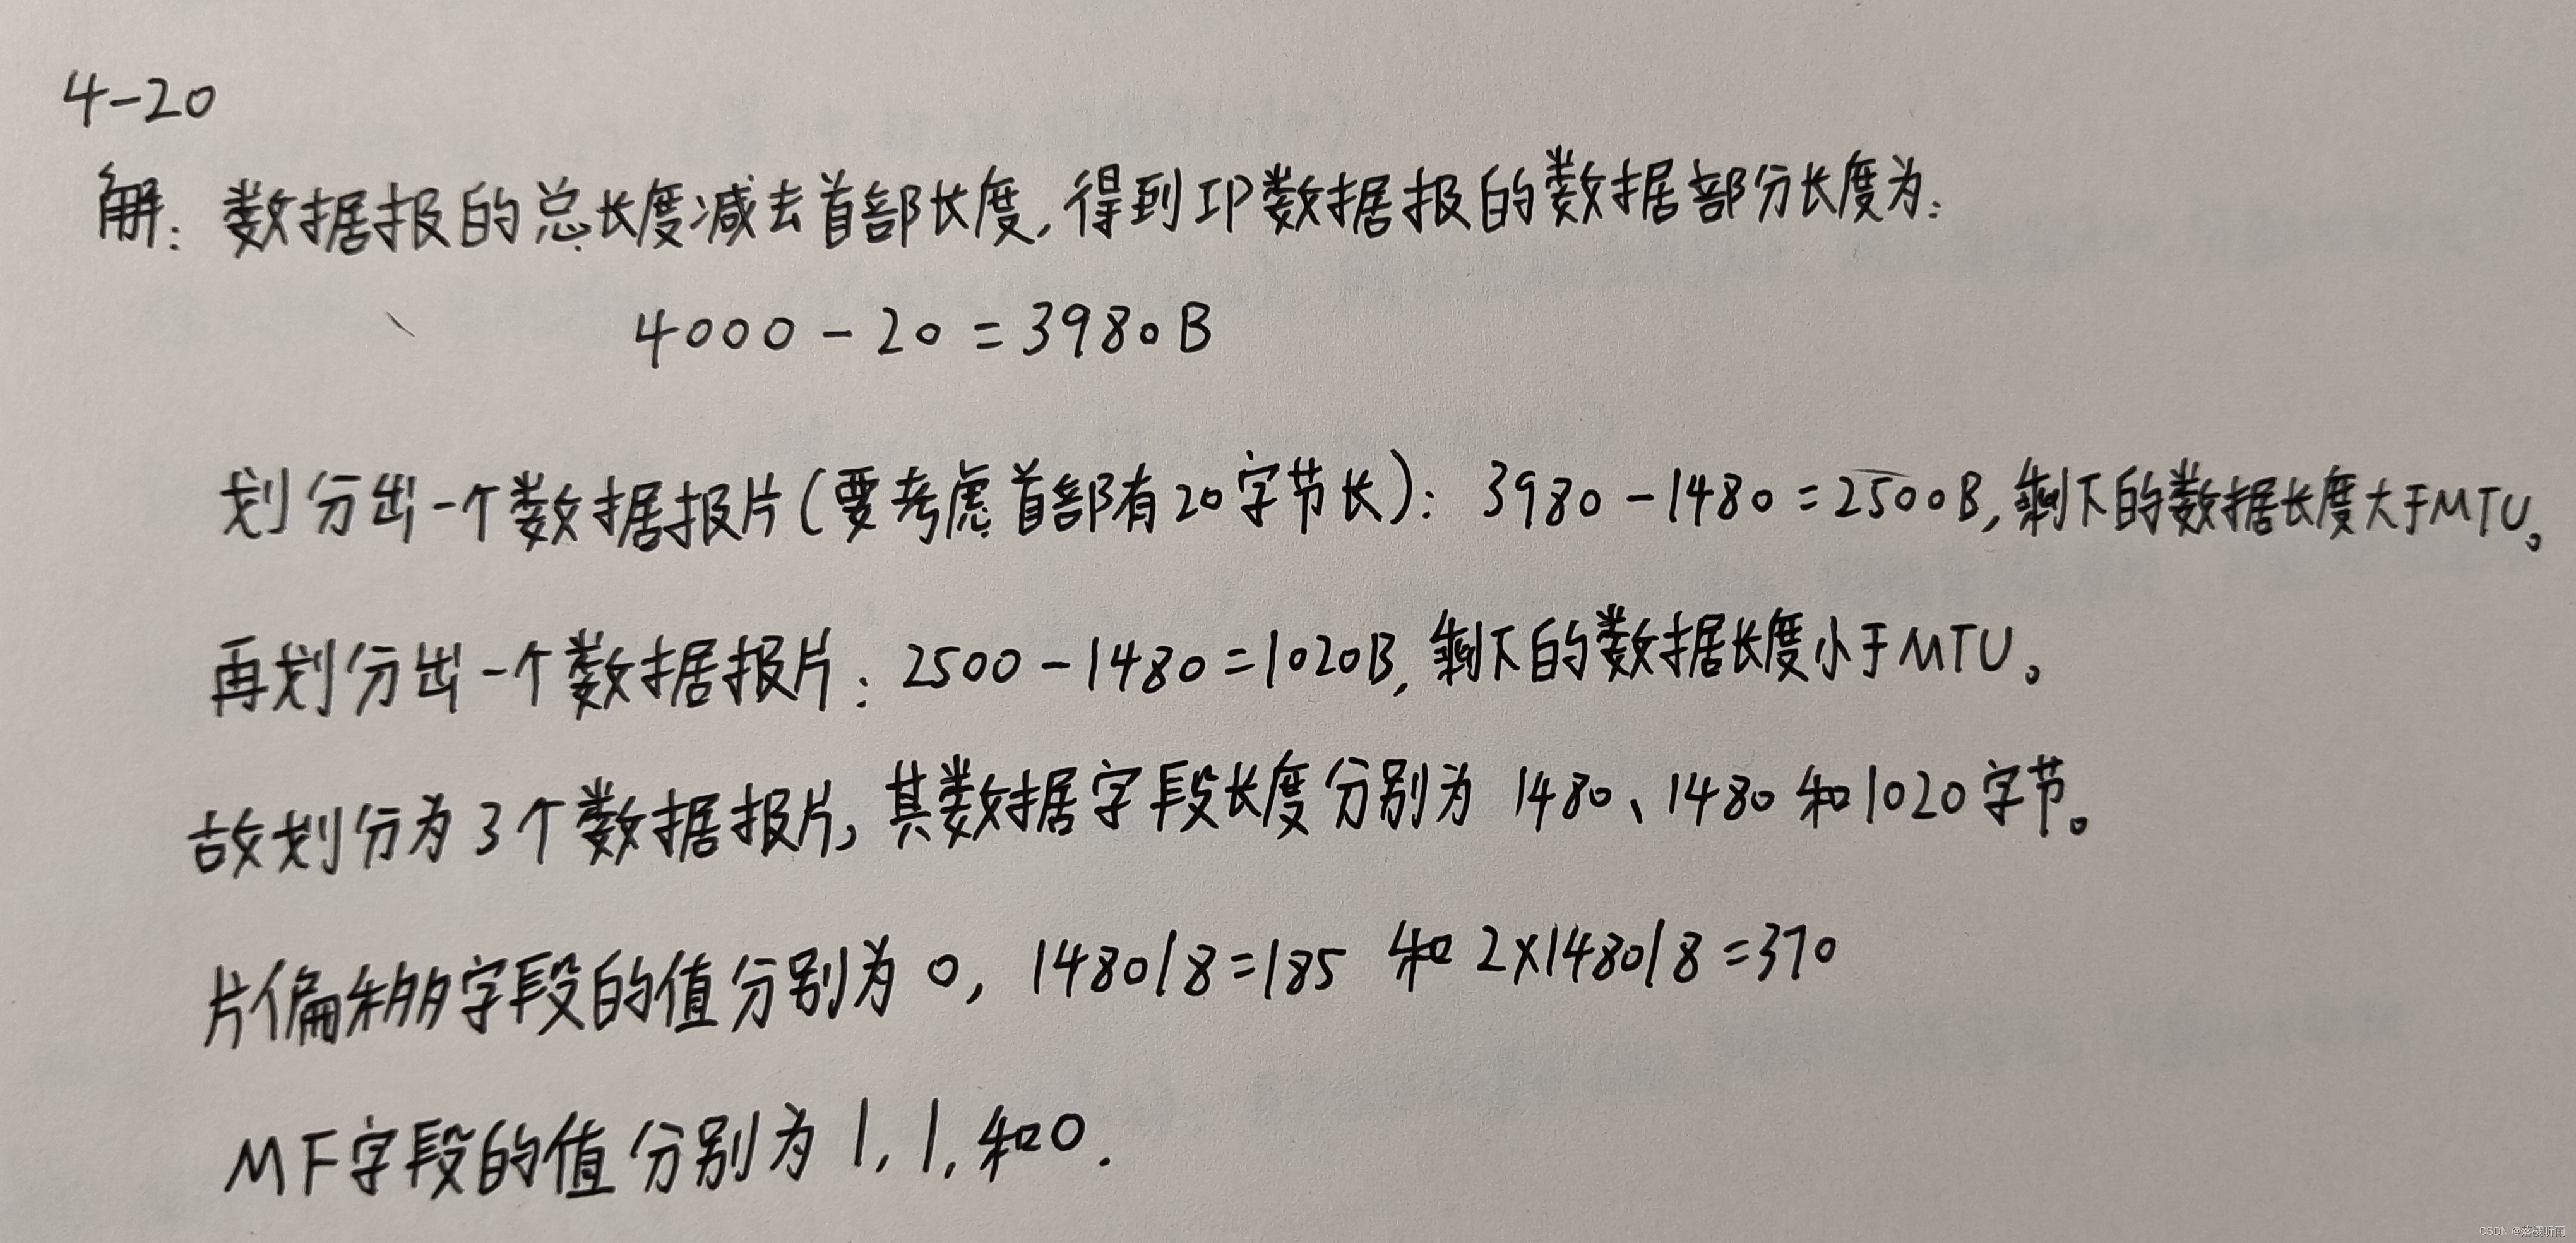 4-20
解：数据报的总长度减去首部长度，得到IP数据报的数据部分长度为：
4000-20=3980B
划分出一个数据报片(要考虑首部有20字节长)：3980-1480=2500B，剩下的数据长度大于MTU。
再划分出一个数据报片：2500-1480=1020B，剩下的数据长度小于MTU。
故划分为3个数据报片，其数据字段长度分别为1480、1480和1020字节。
片偏移字段的值分别为0，1480/8=185 和 2×1480/8=370
MF字段的值分别为1，1，和0.
CSDN @落樱听雨